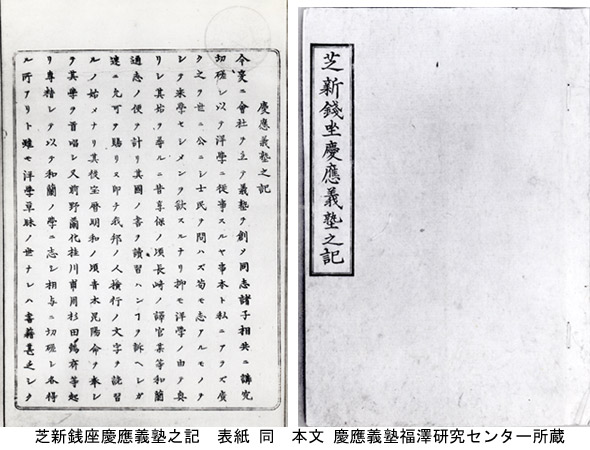 芝新錢坐慶應義塾之記
慶應義塾之記
今爰ニ會社ヲ立テ義塾ヲ創メ同志諸子相共ニ講究
切磋シ以テ洋學ニ從事スルヤ事本ト私ニアラズ廣
ク之ヲ世ニ公ニシ士民ヲ問ハズ苟モ志アルモノヲ
シテ來學セシメンヲ欲スルナリ抑モ洋學ノ由テ興
リシ其始ヲ尋ルニ昔享保ノ頃長崎ノ譯官某等和蘭
通志ノ便ヲ計リ其國ノ書ヲ讀習ハンヿヲ訴ヘシガ
速ニ允可ヲ賜リヌ即チ我邦ノ人横行ノ文字ヲ讀習
ルノ始メナリ其後宝暦明和ノ頃青木昆陽命ヲ奉シ
テ其學ヲ首唱シ又前野蘭化桂川甫周杉田鷧齋等起
リ專精シ以テ和蘭ノ學ニ志シ相与ニ切磋シ各得
ル所アリト雖モ洋學草昧ノ世ナレハ書籍甚乏シク
芝新銭座慶應義塾之記 表紙 同 本文 慶應義塾福澤研究センター所蔵